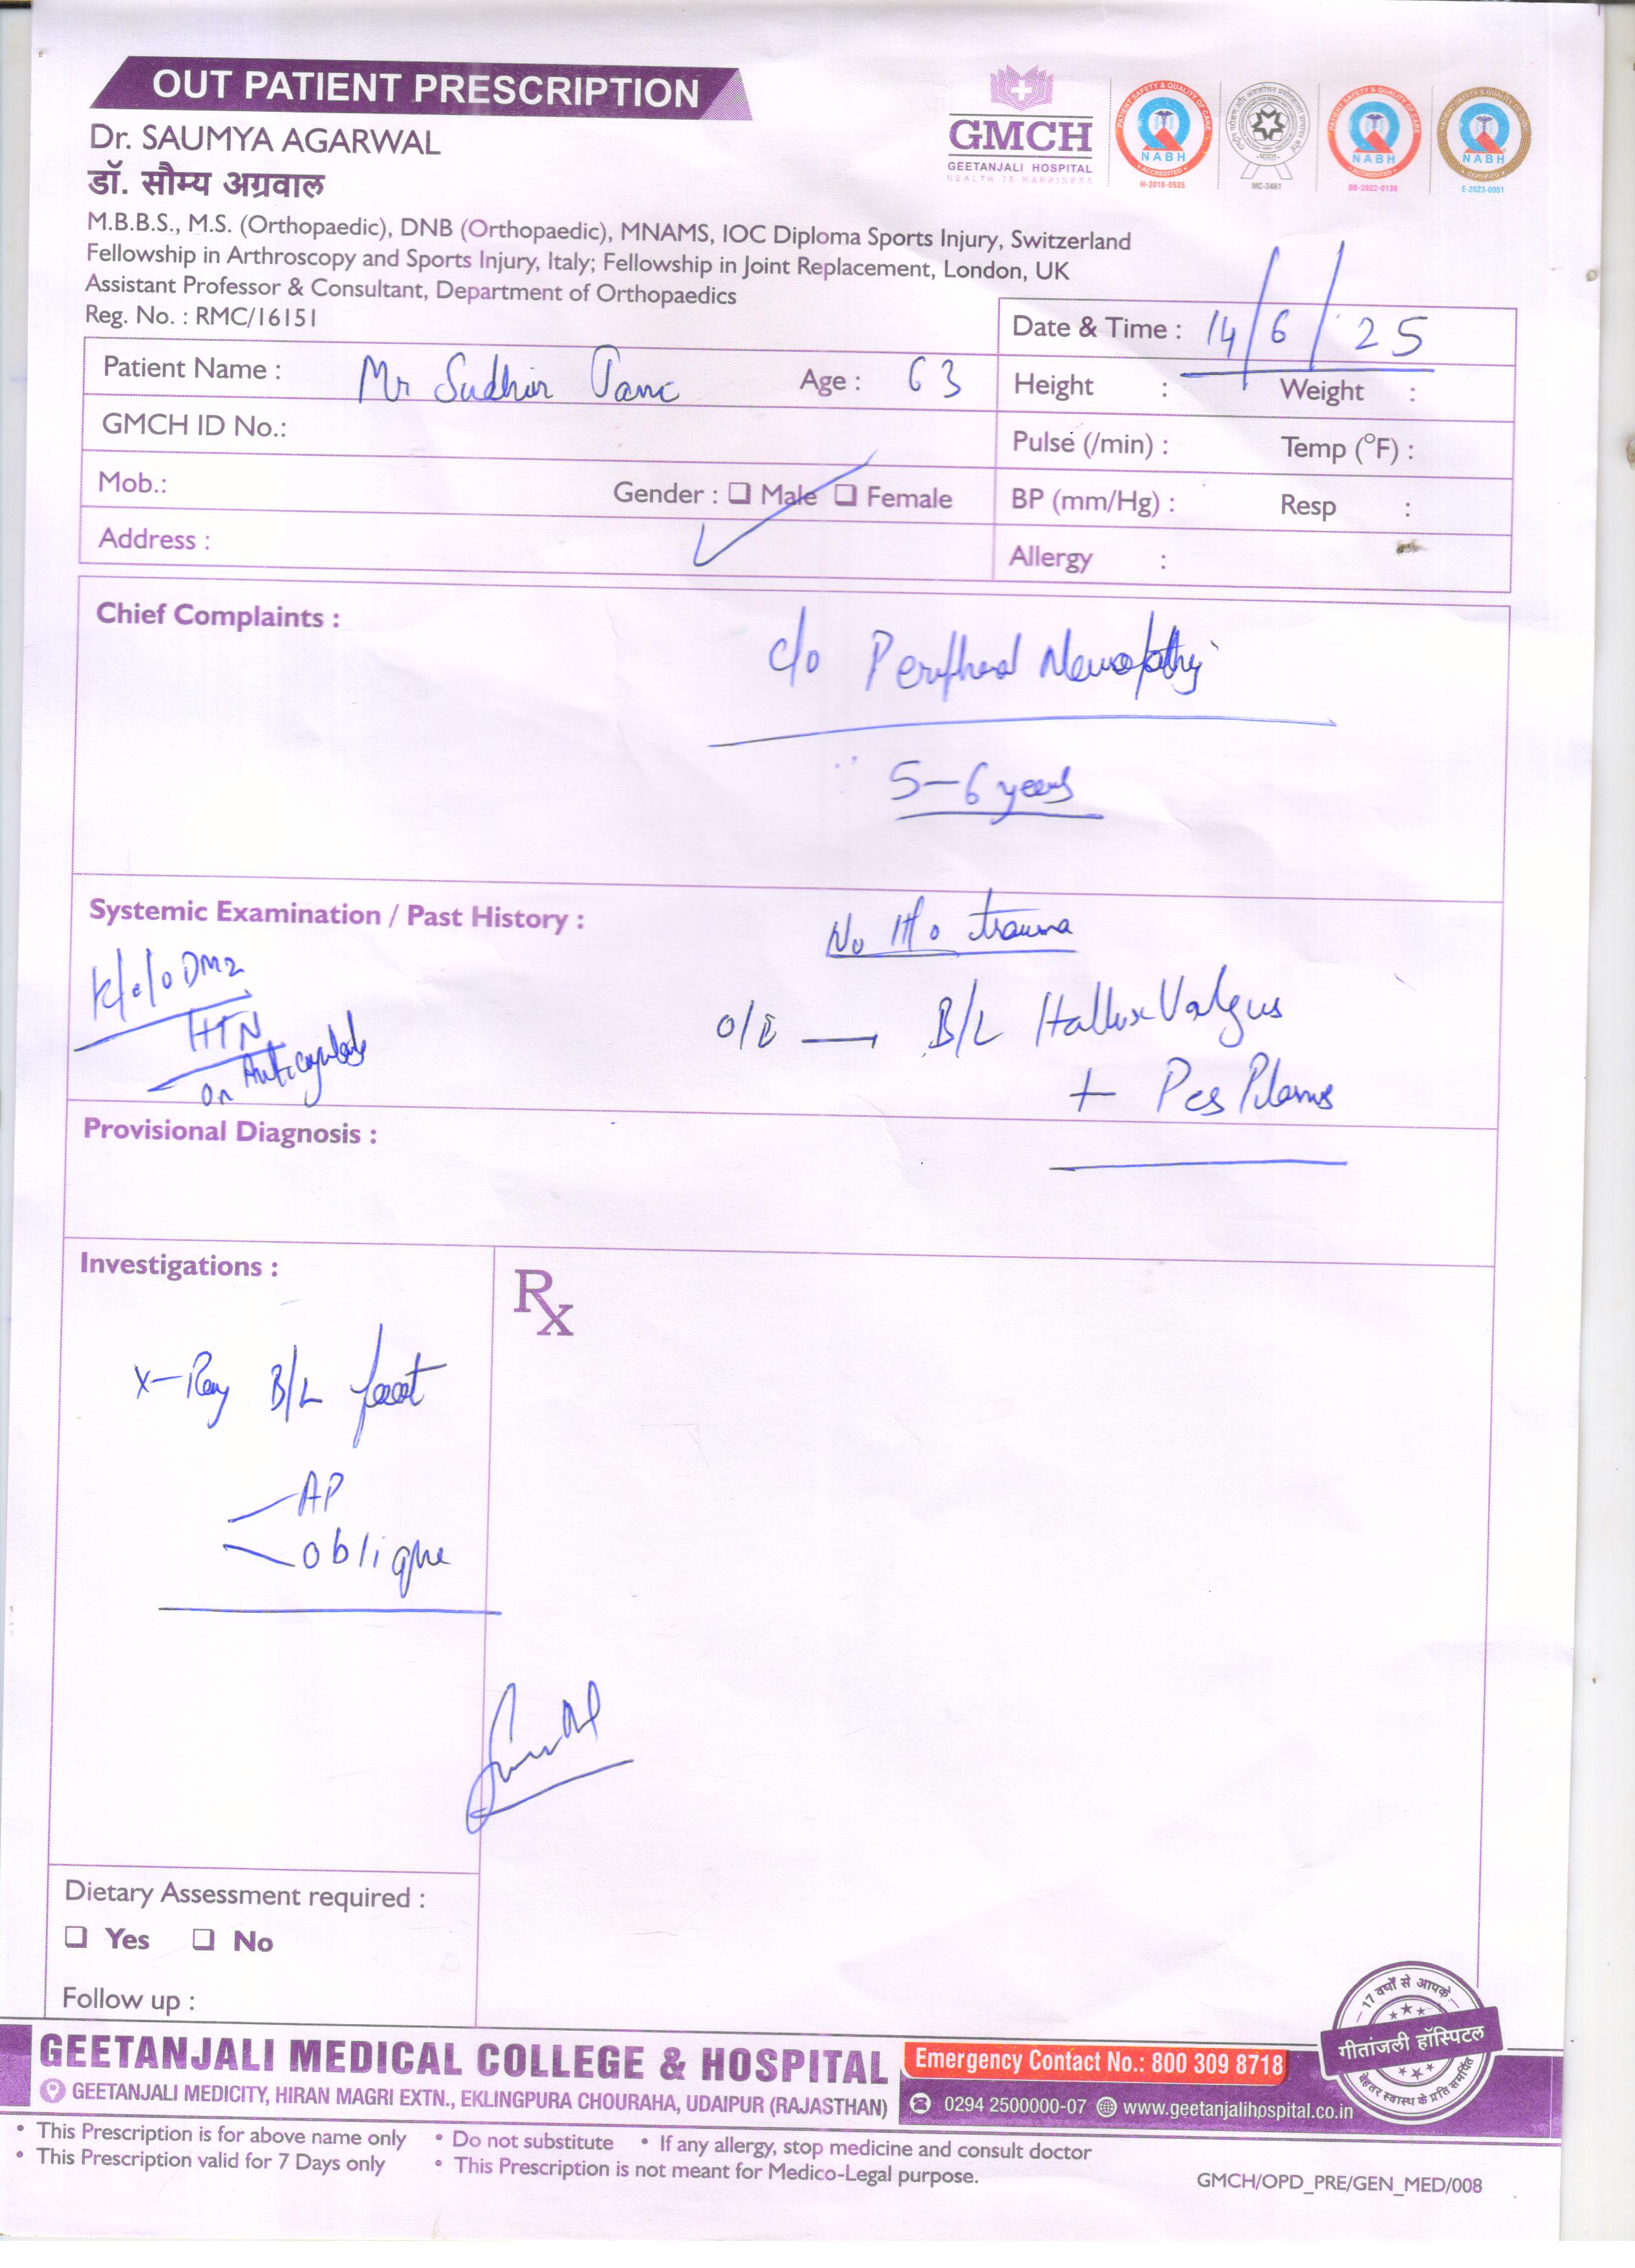 OUT PATIENT PRESCRIPTION
Dr. SAUMYA AGARWAL
डॉ. सौम्य अग्रवाल
M.B.B.S., M.S. (Orthopaedic), DNB (Orthopaedic), MNAMS, IOC Diploma Sports Injury, Switzerland
Fellowship in Arthroscopy and Sports Injury, Italy; Fellowship in Joint Replacement, London, UK
Assistant Professor & Consultant, Department of Orthopaedics
Reg. No. : RMC/16151
GMCH
GEETANJALI HOSPITAL
HEALTH IS HAPPINESS
PATIENT SAFETY & QUALITY OF CARE
NABH
ACCREDITED
H-2018-0535
MC-3461
NABH
BB-2022-0130
NABH
E-2023-0051
Date & Time : 14/6/25
Patient Name : Mr Sudhir Age : 63
Height : Weight :
GMCH ID No.:
Pulse (/min) : Temp (°F) :
Mob.: Gender : ❑ Male ❑ Female
BP (mm/Hg) : Resp :
Address :
Allergy :
Chief Complaints :
c/o Peripheral Neuropathy
5-6 years
Systemic Examination / Past History :
No H/o trauma
K/c/o DM2
HTN
on Anticoagulants
O/E — B/L Hallux Valgus
+ Pes Planus
Provisional Diagnosis :
Investigations :
Rx
X-Ray B/L foot
AP
oblique
Dietary Assessment required :
❑ Yes ❑ No
Follow up :
17 वर्षों से आपके
गीतांजली हॉस्पिटल
बेहतर स्वास्थ के प्रति समर्पित
GEETANJALI MEDICAL COLLEGE & HOSPITAL
Emergency Contact No.: 800 309 8718
GEETANJALI MEDICITY, HIRAN MAGRI EXTN., EKLINGPURA CHOURAHA, UDAIPUR (RAJASTHAN)
0294 2500000-07 www.geetanjalihospital.co.in
• This Prescription is for above name only • Do not substitute • If any allergy, stop medicine and consult doctor
• This Prescription valid for 7 Days only • This Prescription is not meant for Medico-Legal purpose.
GMCH/OPD_PRE/GEN_MED/008